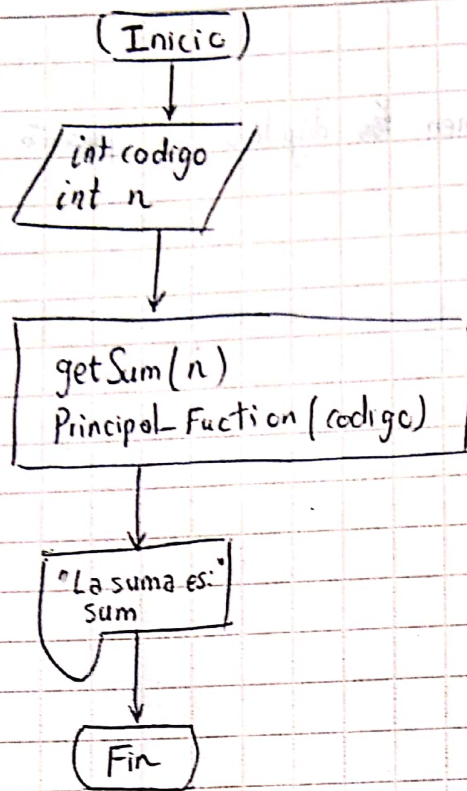 (Inicio)
int codigo
int n
getSum(n)
Principal_Fuction(codigo)
"La suma es:"
sum
Fin